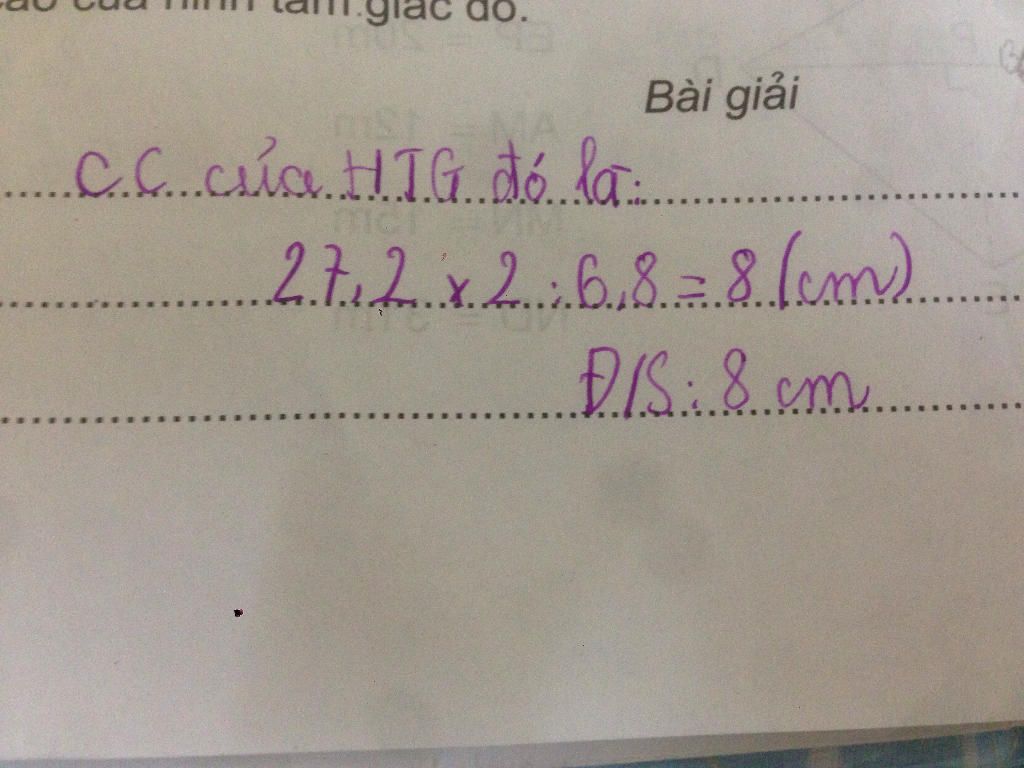 cao của hình tam giác đó.
Bài giải
CC của HTG đó là:
27,2 x 2 : 6,8 = 8 (cm)
Đ/S: 8 cm